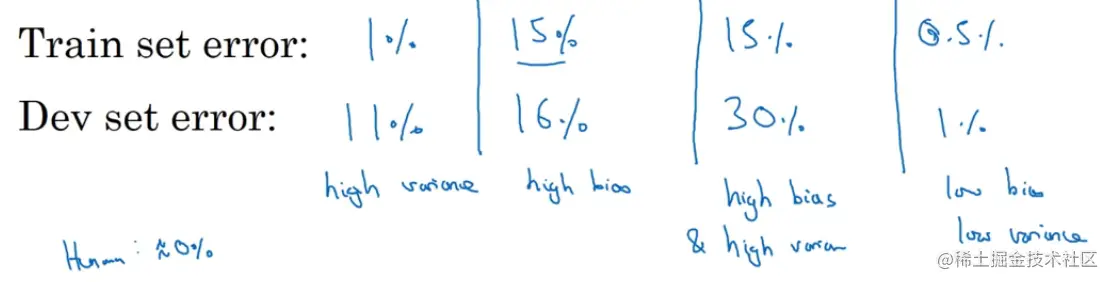 Train set error: 1% 15% 15% 0.5%
Dev set error: 11% 16% 30% 1%
high variance high bias high bias low bias
& high varian low variance
Human: ≈0%
@稀土掘金技术社区